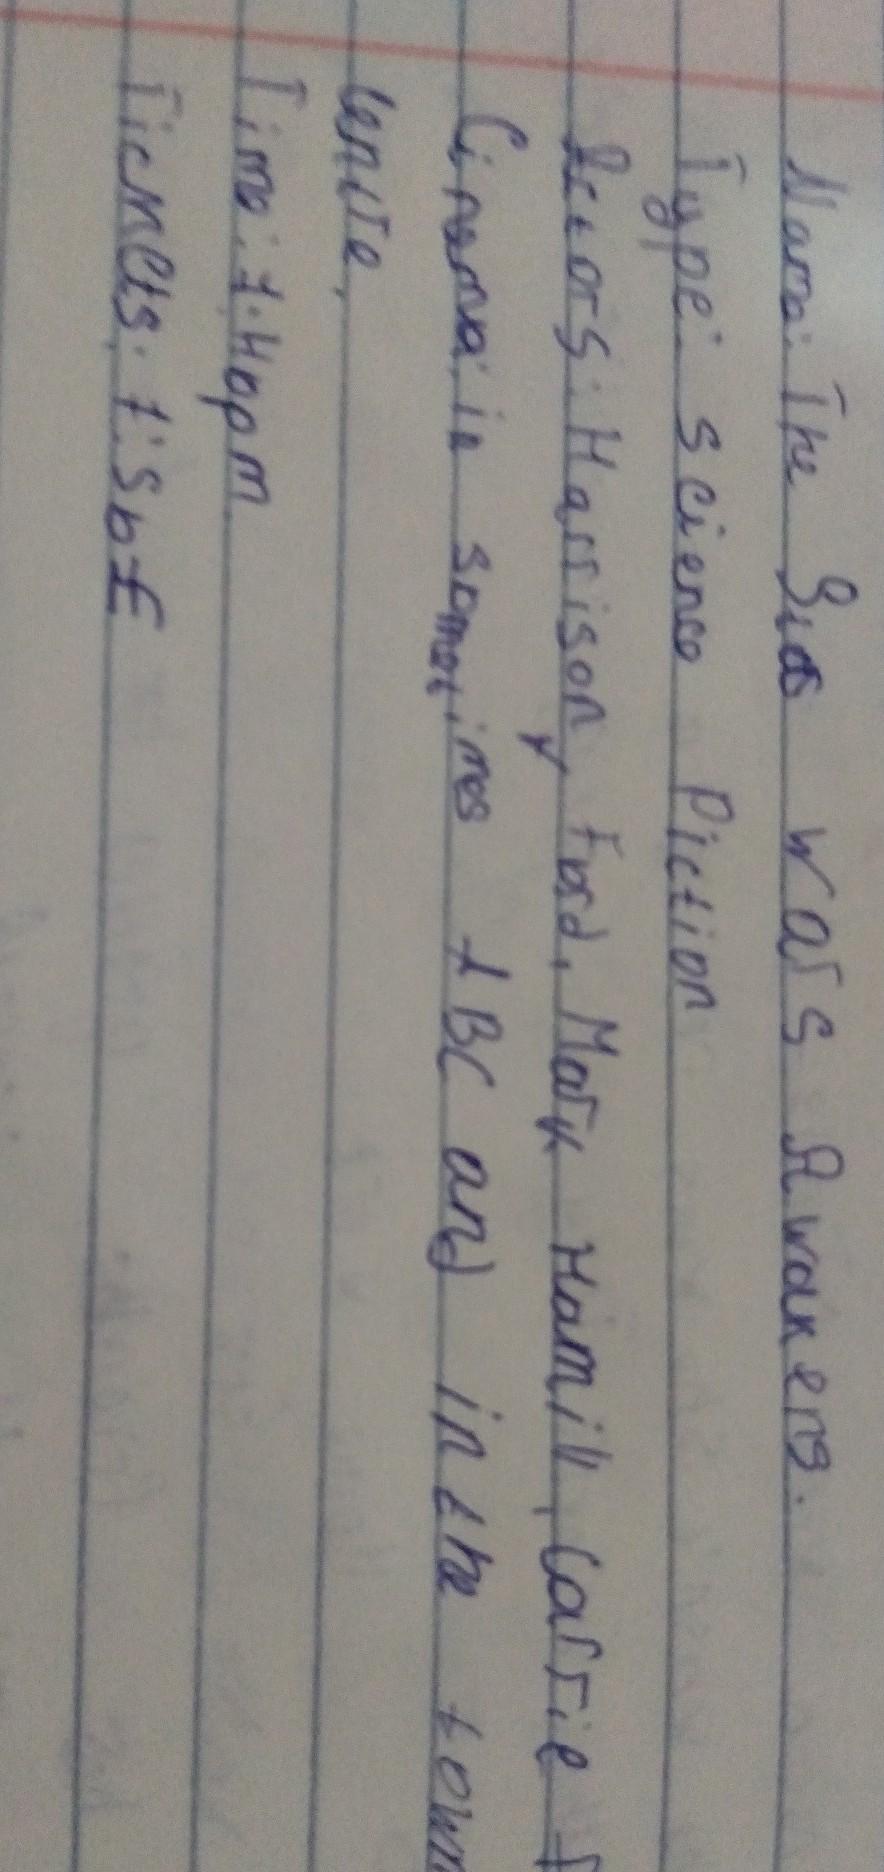 Name: The Star wars Awakens.
Type: science Fiction
Actors: Harrison, Ford, Mark Hamill, Carrie F
Cinema: in sometimes ABC and in the town
centre.
Time: 7.40pm
Tickets: 7:50£